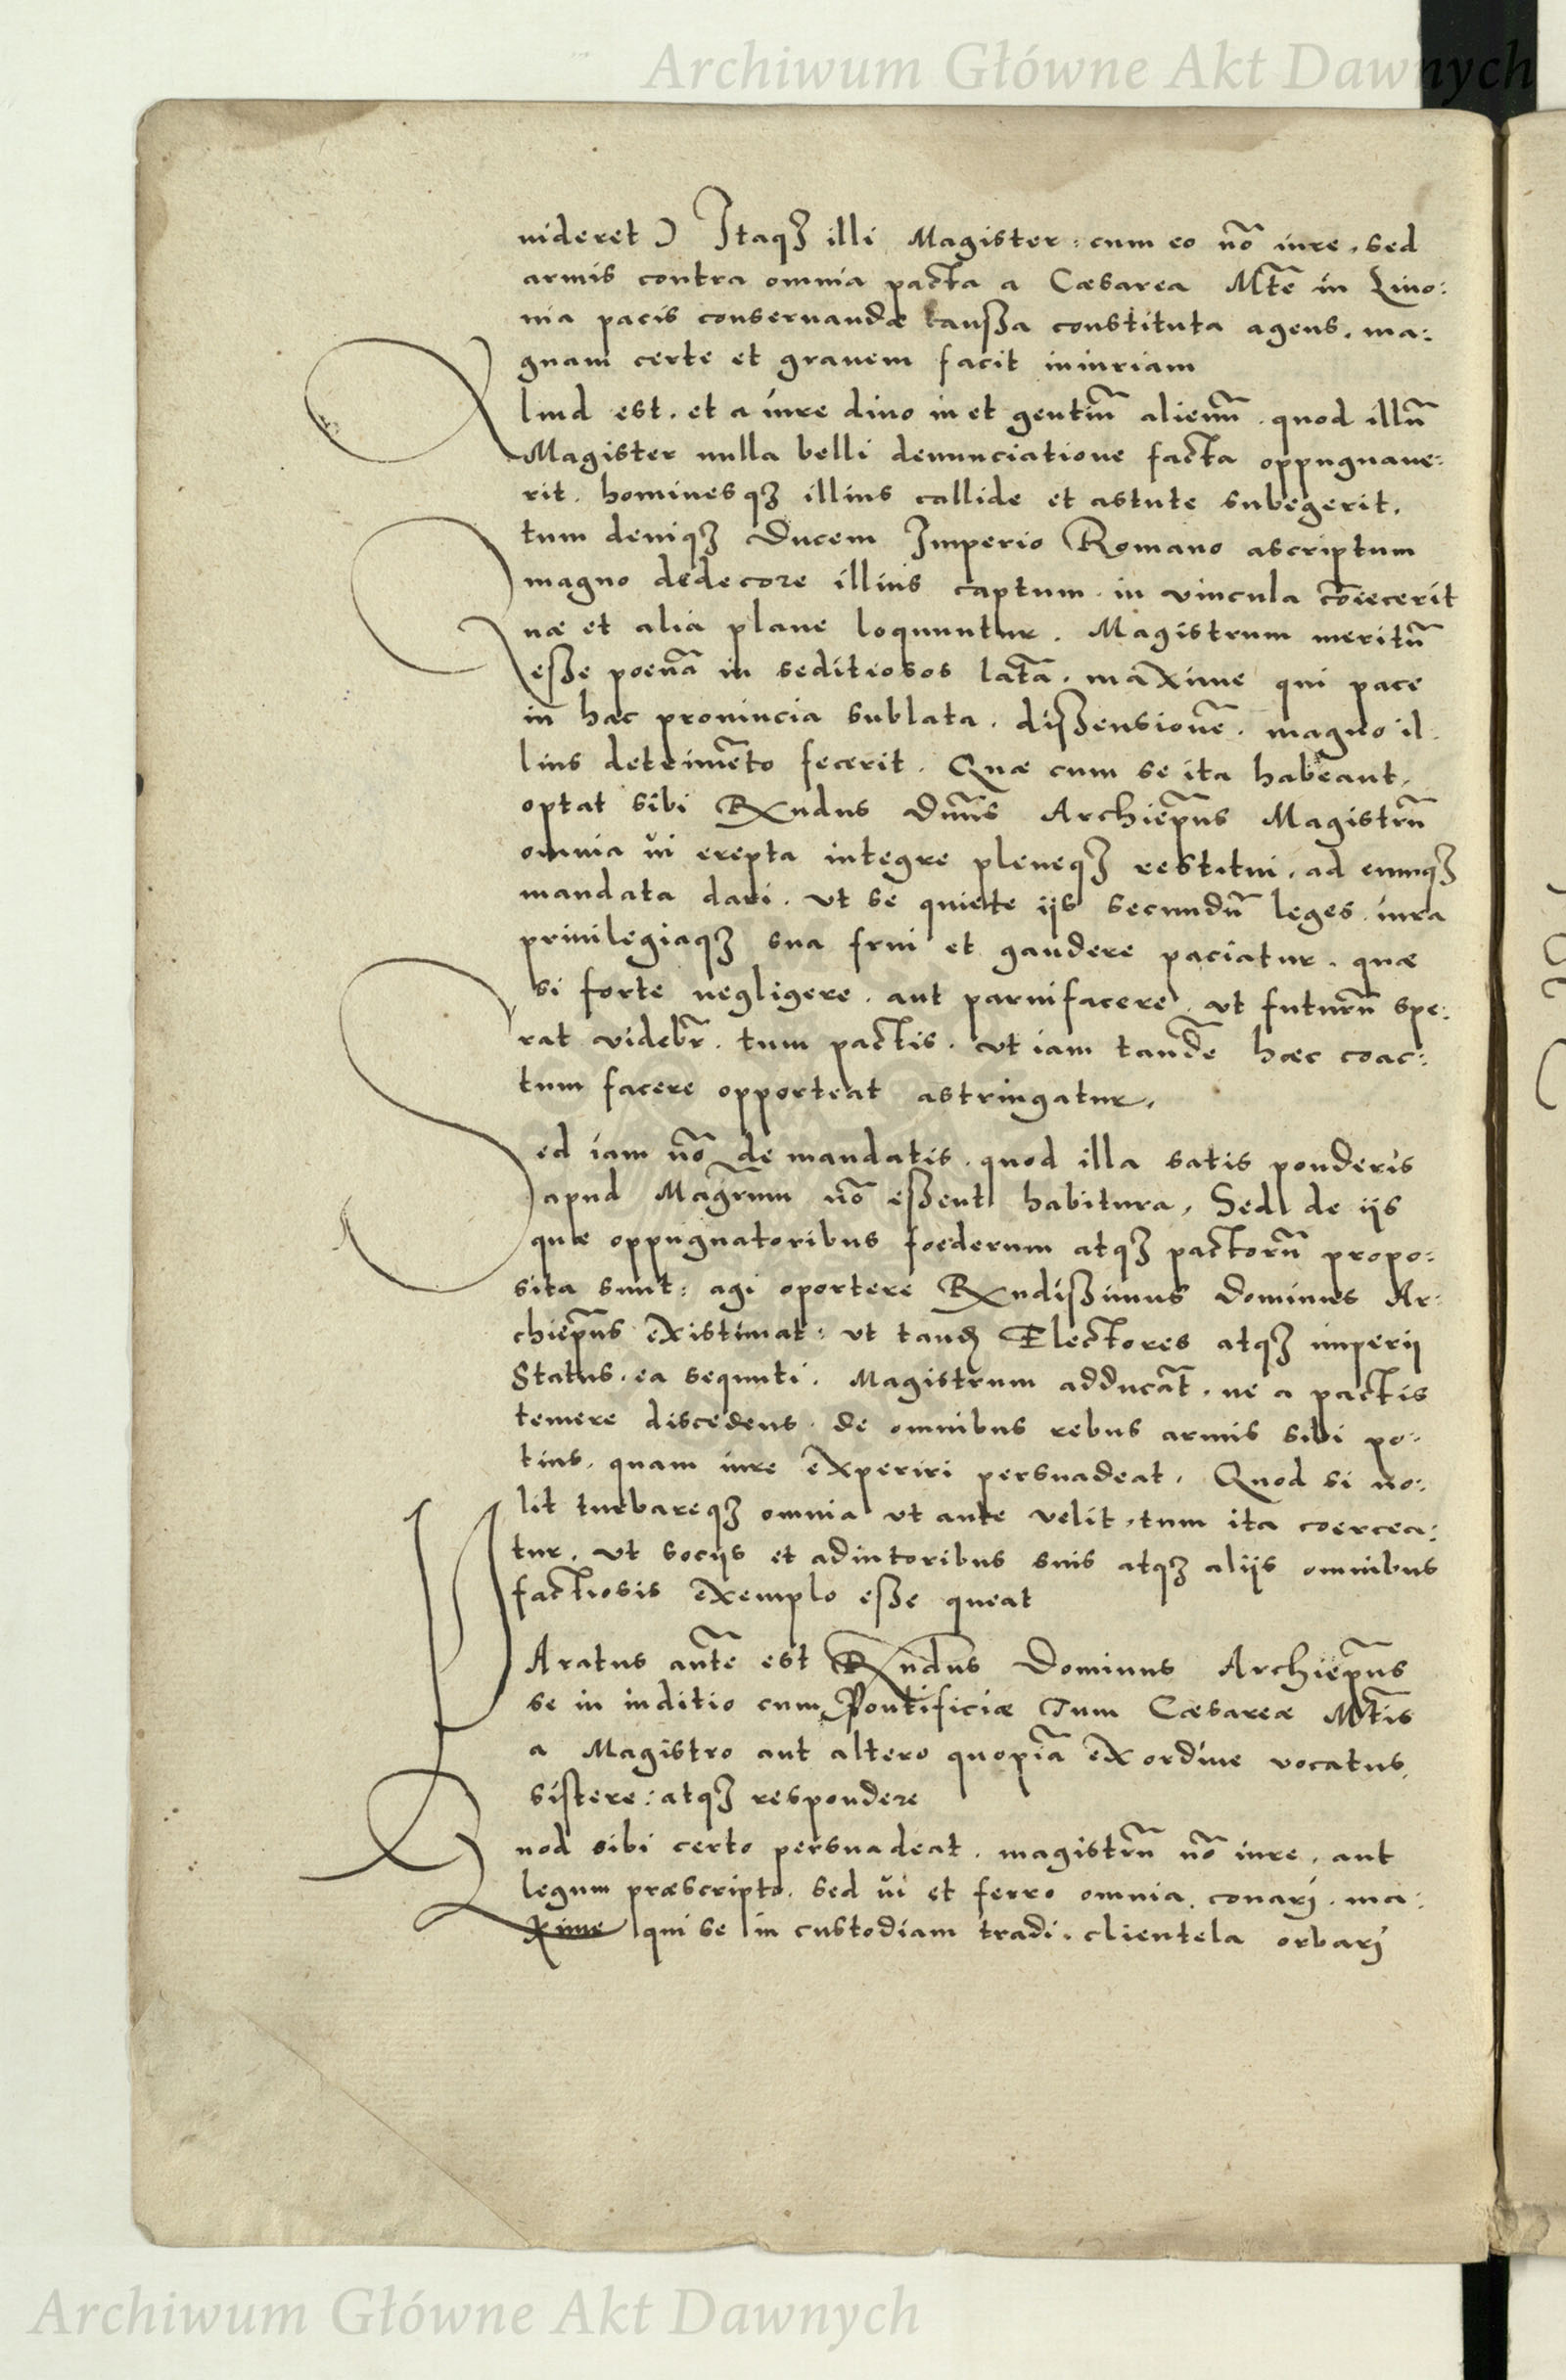 Archiwum Główne Akt Dawnych
uideret) Itaqꝫ illi Magister: cum eo nō iure, sed
armis contra omnia pacta a Cæsarea Mte in Liuo:
nia pacis conseruandæ caussa constituta agens, ma:
gnam certe et grauem facit iniuriam
Aliud est, et a iure diuo in et gentiū alienū, quod illū
Magister nulla belli denunciatione facta oppugnaue:
rit, hominesqꝫ illius callide et astute subegerit,
tum deniqꝫ Ducem Imperio Romano ascriptum
magno dedecore illius captum, in vincula cōiecerit
Quæ et alia plane loquuntur, Magistrum meritū
esse poenā in seditiosos latā, maxime qui pace
in hac prouincia sublata, dissensionē, magno il:
lius detrimēto fecerit. Quæ cum se ita habeant,
optat sibi Rxndus Dnūs Archiepūs Magistrū
omnia ui erepta integre pleneqꝫ restitui, ad eumqꝫ
mandata dari, vt se quiete ijs secundū leges iura
priuilegiaqꝫ sua frui et gaudere paciatur, quæ
si forte negligere, aut paruifacere, vt futurū spe:
rat videbr̄, tum pactis, vt iam tandē hæc coac:
tum facere opporteat astringatur,
Sed iam nō de mandatis, quod illa satis ponderis
apud Magrūm nō essent habitura, Sed de ijs
quæ oppugnatoribus foederum atqꝫ pactorū propo:
sita sunt: agi oportere Rxndissimus Dominus Ar:
chiepūs existimat: vt tandē Electores atqꝫ imperij
Status, ea sequuti, Magistrum adducāt, ne a pactis
temere discedens, de omnibus rebus armis sibi po:
tius, quam iure experiri persuadeat, Quod si no:
lit turbareqꝫ omnia vt ante velit, tum ita coercea:
tur, vt socijs et adiutoribus suis atqꝫ alijs omnibus
factiosis exemplo esse queat
PAratus aūte est Rxndus Dominus Archiepūs
se in iuditio cum Pontificiæ Tum Cæsareæ Mtis
a Magistro aut altero quopiā ex ordine vocatus,
sistere: atqꝫ respondere
Quod sibi certo persuadeat, magistrū nō iure, aut
legum præscripto, sed ui et ferro omnia conarj, ma:
xime qui se in custodiam tradi, clientela orbarj
Archiwum Główne Akt Dawnych